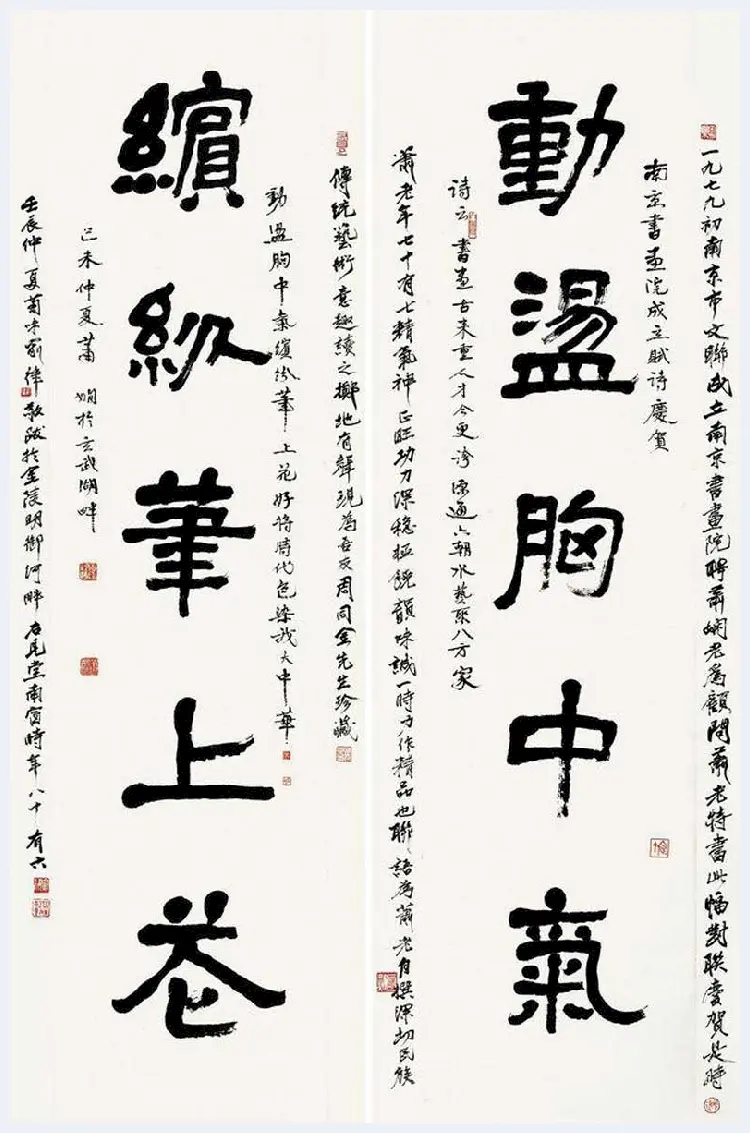 一九七九初南京市文聯成立南京書畫院聘蕭嫻老為顧問蕭老特書此幅對联慶賀是時
南京書画院成立賦詩慶賀
動盪胸中氣
詩云書画古來重人才今更誇源通六朝水藝聚八方家
蕭老年七十有七精氣神正旺功力深穩極饒韻味誠一時力作精品也聯語為蕭老自撰深切民族
傳統藝術意趣讀之擲地有聲現為吾友周同金先生珍藏
動盪胸中氣繽紛筆上花好將時代色染我大中華
繽紛筆上花
己未仲夏蕭嫻於玄武湖畔
壬辰仲夏菊味俞律敬跋於金陵明御河畔見堂南窗時年八十有六